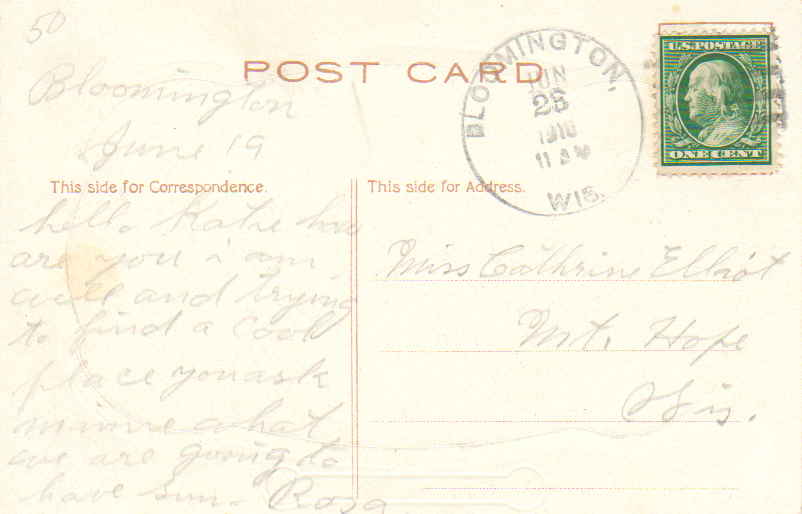 50
POST CARD
BLOOMINGTON,
JUN
23
1910
11 AM
WIS.
U.S. POSTAGE
ONE CENT
Bloomington
June 19
This side for Correspondence.
hello Katie how
are you i am
well and trying
to find a cool
place you ask
minnie what
we are going to
have sun. Rosa
This side for Address.
Miss Cathrine Elliot
Mt. Hope
Wis.